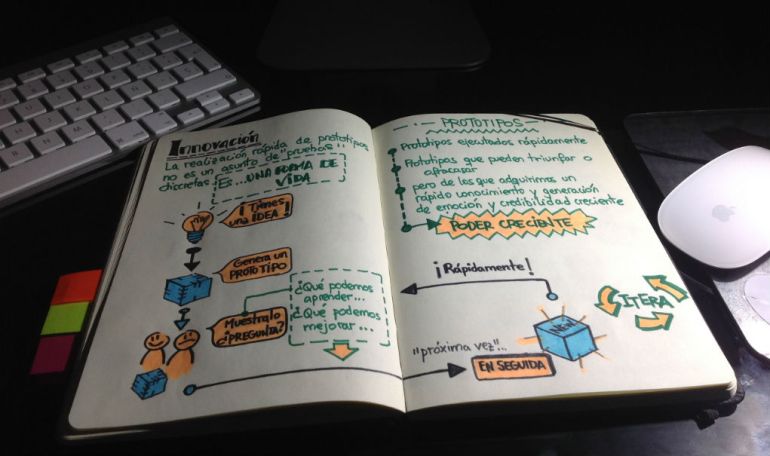 Innovación
La realización rápida de prototipos
no es un asunto de "pruebas"
discretas
Es... UNA FORMA DE
VIDA
¡Tienes
una IDEA!
Genera un
PROTOTIPO
Muéstralo
¿PREGUNTA?
¿Qué podemos
aprender...
¿Qué podemos
mejorar...
PROTOTIPOS
Prototipos ejecutados rápidamente
Prototipos que pueden triunfar o
fracasar
pero de los que adquirimos un
rápido conocimiento y generación
de emoción y credibilidad creciente
PODER CRECIENTE
¡Rápidamente!
ITERA
NEW!
"próxima vez"...
EN SEGUIDA